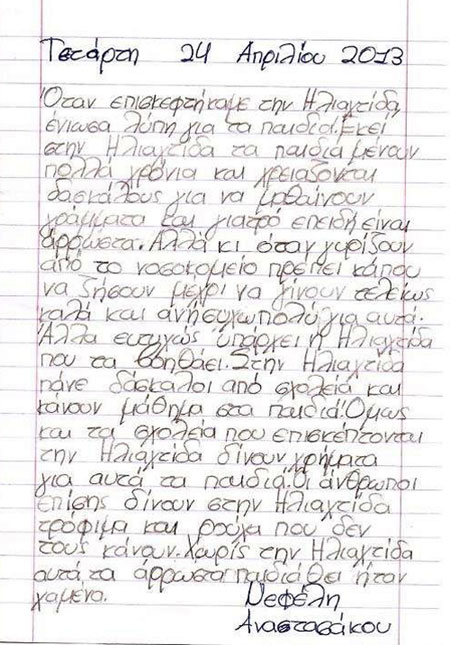 Τετάρτη 24 Απριλίου 2013
Όταν επισκεφτήκαμε την Ηλιαχτίδα,
ένιωσα λύπη για τα παιδιά. Εκεί
στην Ηλιαχτίδα τα παιδιά μένουν
πολλά χρόνια και χρειάζονται
δασκάλους για να μαθαίνουν
γράμματα και γιατρό επειδή είναι
άρρωστα. Αλλά κι όταν γυρίζουν
από το νοσοκομείο πρέπει κάπου
να ζήσουν μέχρι να γίνουν τελείως
καλά και ανησυχώ πολύ για αυτά.
Άλλα ευτυχώς υπάρχει η Ηλιαχτίδα
που τα βοηθάει. Στην Ηλιαχτίδα
πάνε δάσκαλοι από σχολεία και
κάνουν μάθημα στα παιδιά. Όμως
και τα σχολεία που επισκέπτονται
την Ηλιαχτίδα δίνουν χρήματα
για αυτά τα παιδιά. Οι άνθρωποι
επίσης δίνουν στην Ηλιαχτίδα
τρόφιμα και ρούχα που δεν
τους κάνουν. Χωρίς την Ηλιαχτίδα
αυτά τα άρρωστα παιδιά θει ήταν
χαμένα.
Νεφέλη
Αναστασάκου